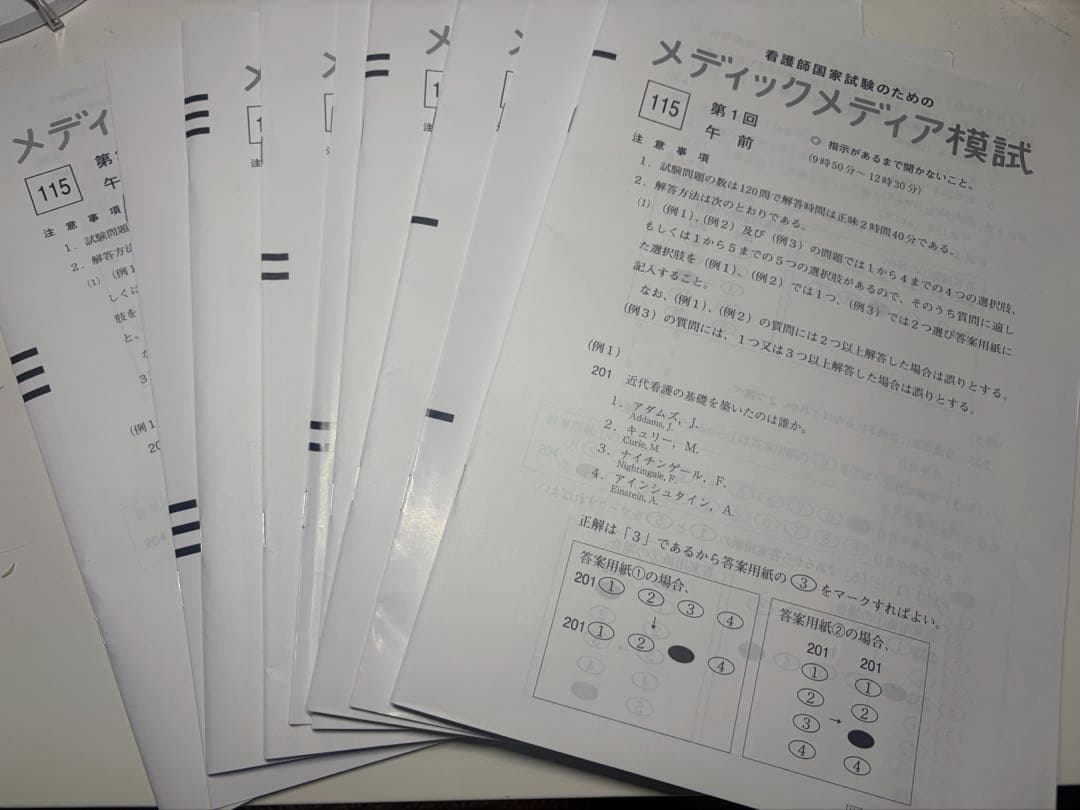 看護師国家試験のための
メディックメディア模試
115
第1回
午前
◎ 指示があるまで開かないこと。
(9時50分~12時30分)
注意事項
1. 試験問題の数は120問で解答時間は正味2時間40分である。
2. 解答方法は次のとおりである。
(1) (例1)、(例2)及び(例3)の問題では1から4までの4つの選択肢、
もしくは1から5までの5つの選択肢があるので、そのうち質問に適し
た選択肢を(例1)、(例2)では1つ、(例3)では2つ選び答案用紙に
記入すること。
なお、(例1)、(例2)の質問には2つ以上解答した場合は誤りとする。
(例3)の質問には、1つ又は3つ以上解答した場合は誤りとする。
(例1)
201 近代看護の基礎を築いたのは誰か。
1. アダムズ, J.
Addams, J.
2. キュリー, M.
Curie, M.
3. ナイチンゲール, F.
Nightingale, F.
4. アインシュタイン, A.
Einstein, A.
正解は「3」であるから答案用紙の③をマークすればよい。
答案用紙①の場合、
201 ① ② ③ ④
↓
201 ① ② ● ④
答案用紙②の場合、
201 201
① ①
② ②
③ → ●
④ ④
メディ
115
第
午
注意事項
1. 試験問題
2. 解答方法
(1) (例1
しくは
肢を
と。
な
3
(例1
20